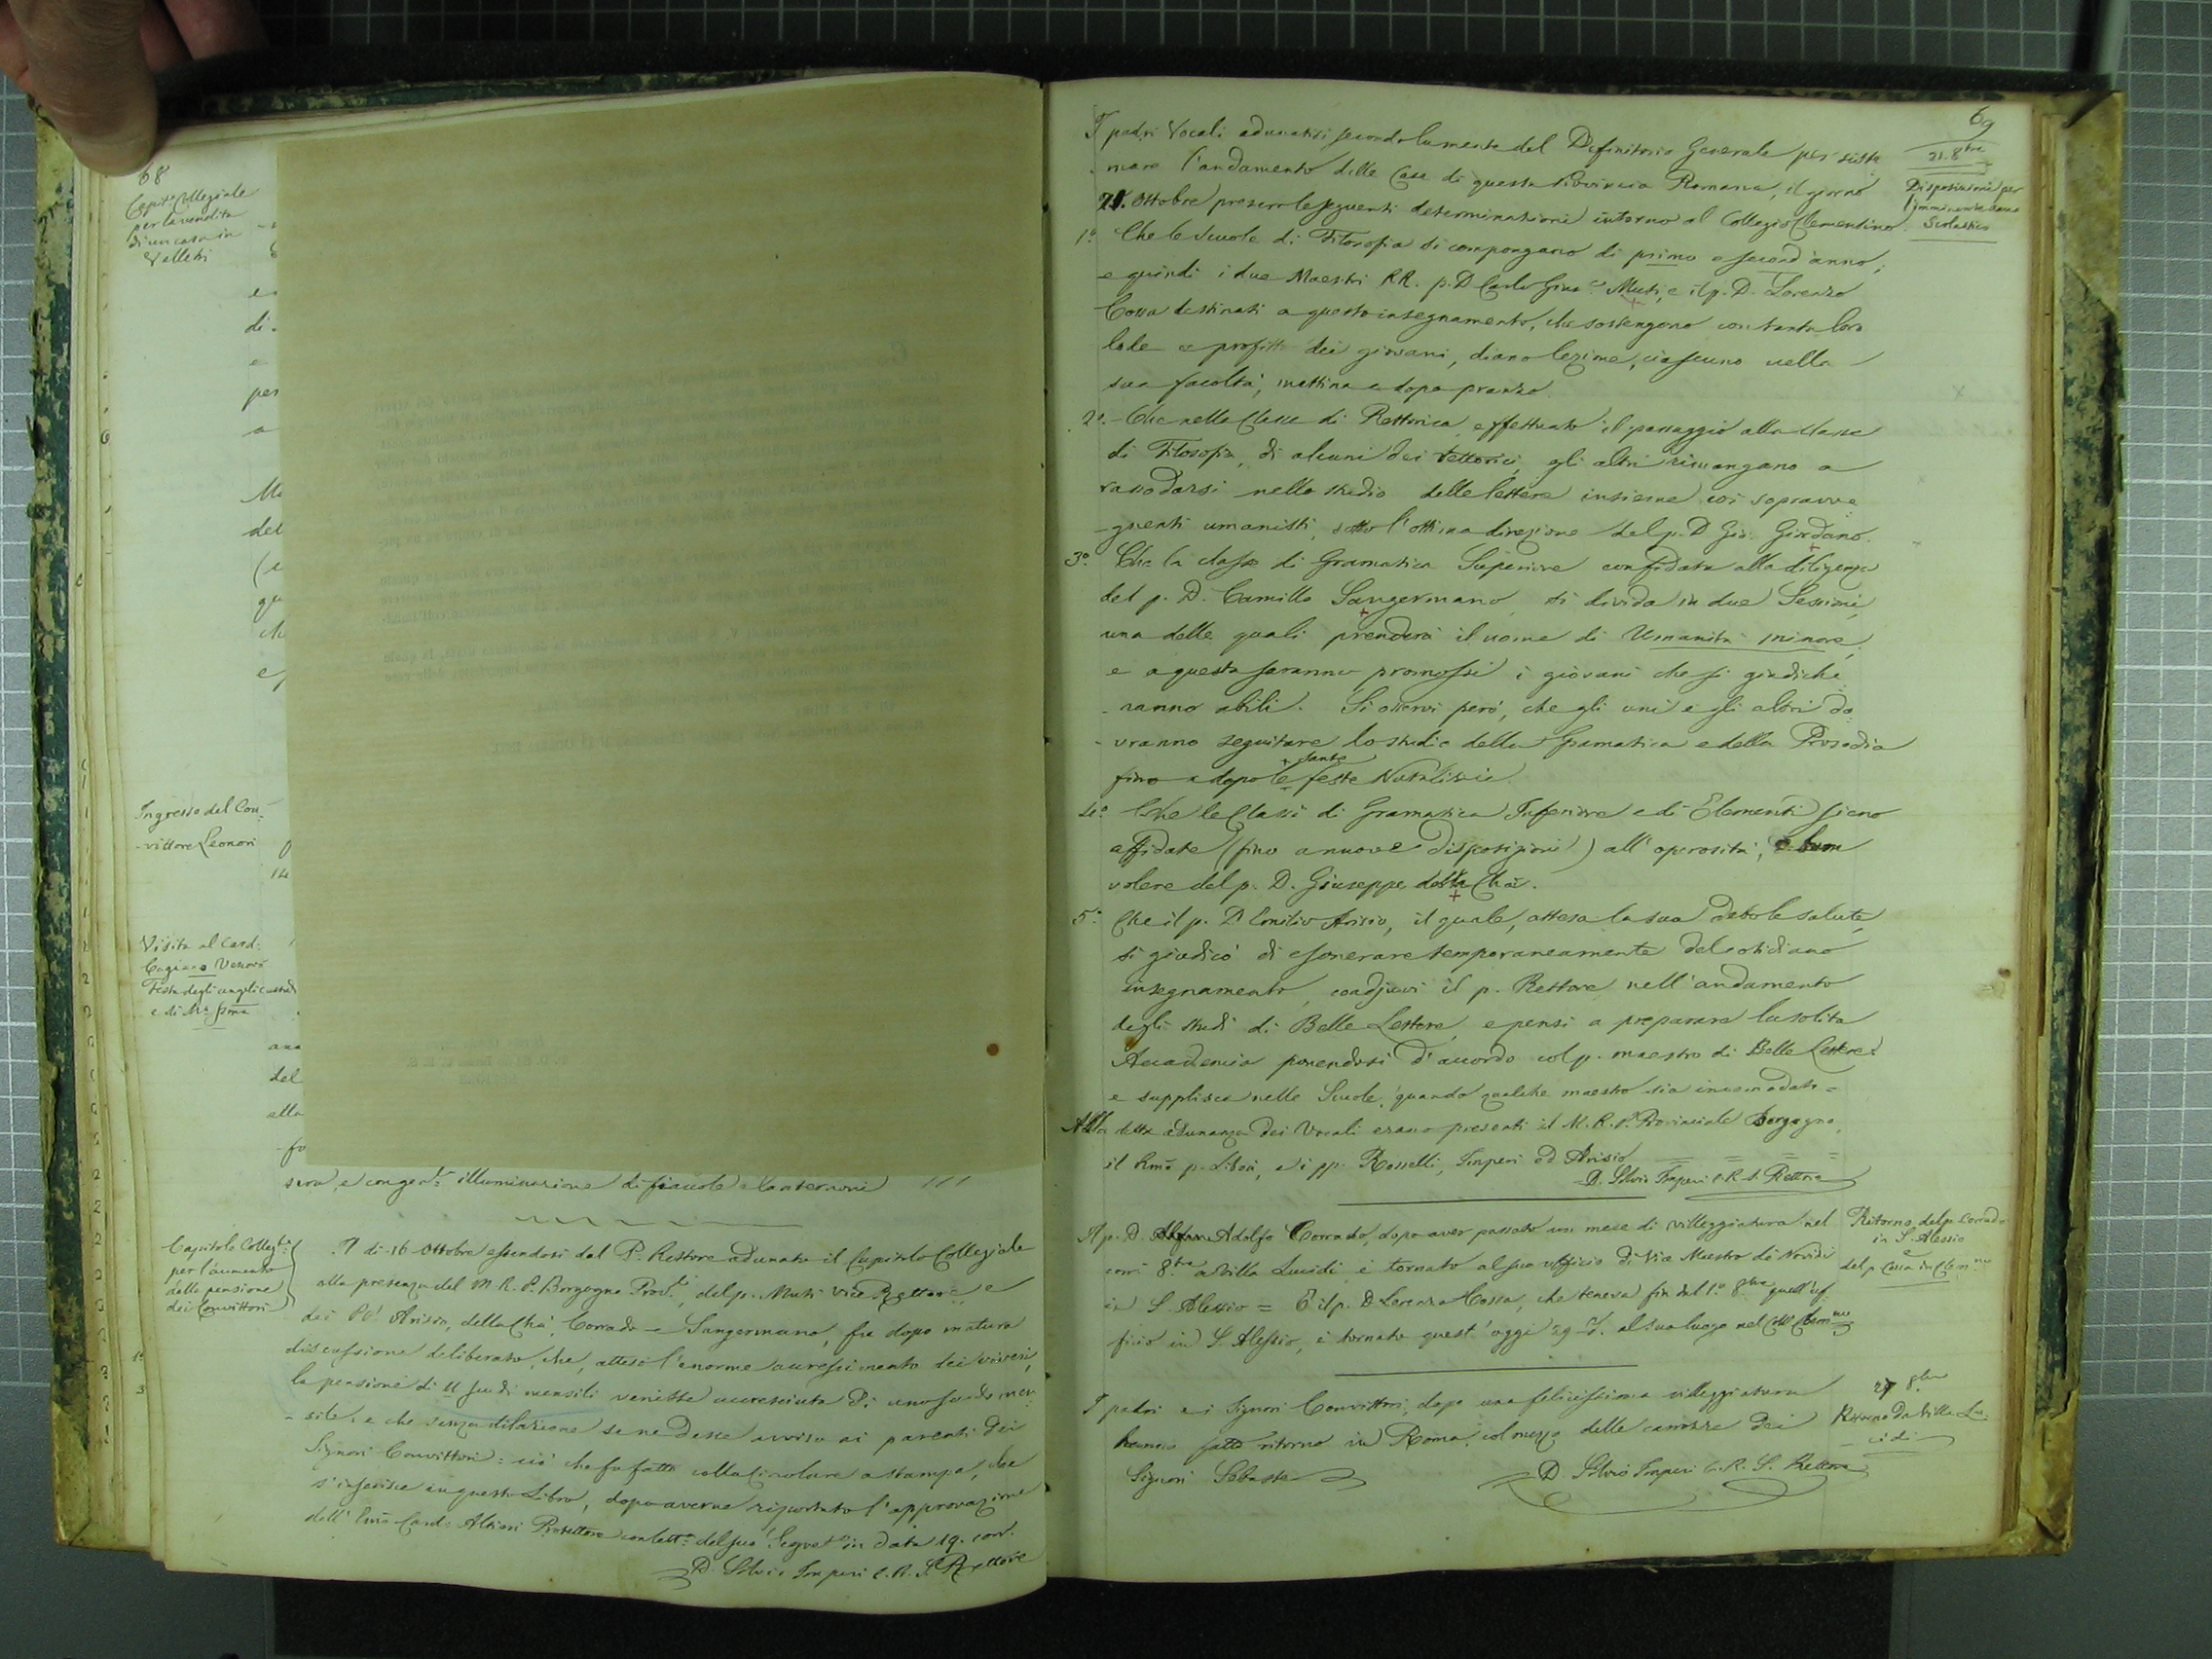 68
Capit.º Collegiale
per la vendita
di un casa in
Velletri
di
e
per
a
del
qu
ch
Ingresso del Con-
-vittore Leonori
Visita al Card:
Cagiano Vescovo
Festa degli angeli custodi
e di M.ª SSma
del
alla
-fo
sera, e congen.le illuminazione di fiaccole e lanternoni
Capitolo Colleg.le
per l'aumento
della pensione
dei Convittori
Il dì 16 Ottobre essendosi dal P. Rettore adunato il Capitolo Collegiale
alla presenza del M. R. P. Borgogno Prov.le, del p. Muti Vice Rettore, e
dei PP. Arisio, della Chà, Corrado e Sangermano, fu dopo matura
discussione deliberato, che, atteso l'enorme accrescimento dei viveri,
la pensione di 11 scudi mensili venisse accresciuta di uno scudo men-
-sile, e che senza dilazione se ne desse avviso ai parenti dei
Signori Convittori: ciò che fu fatto colla Circolare a stampa, che
s'inserisce in questo Libro, dopo averne riportato l'approvazione
dell' Emo Card. Altieri Protettore con lett.ª del suo Segret.º in data 19. corr.
D. Silvio Imperi C. R. S. Rettore
69
I padri Vocali adunatisi secondo la mente del Definitorio Generale per siste-
-mare l'andamento delle Case di questa Provincia Romana, il giorno
21. Ottobre presero le seguenti determinazioni intorno al Collegio Clementino.
21. 8bre
Disposizioni per
l'imminente anno
Scolastico
1.º Che le Scuole di Filosofia si compongano di primo e second'anno;
e quindi i due Maestri RR. p. D. Carlo Gius.e Muti, e il p. D. Lorenzo
Cossa destinati a questo insegnamento, che sostengono con tanta loro
lode e profitto dei giovani, diano lezione, ciascuno nella
sua facoltà, mattina e dopo pranzo.
2.º - Che nella Classe di Rettorica, effettuato il passaggio alla classe
di Filosofia, di alcuni dei rettorici, gli altri rimangano a
rassodarsi nello studio delle lettere insieme coi sopravve-
-gnenti umanisti, sotto l'ottima direzione del p. D. Gio. Giordano.
3.º Che la classe di Gramatica Superiore confidata alla diligenza
del p. D. Camillo Sangermano, si divida in due Sessioni,
una delle quali prenderà il nome di Umanità minore,
e a questa saranno promossi i giovani che si giudiche-
-ranno abili. Si osservi però, che gli uni e gli altri do-
-vranno seguitare lo studio della Gramatica e della Prosodia
+ sante
fino a dopo le feste Natalizie.
4.º Che le Classi di Gramatica Inferiore e di Elementi sieno
affidate (fino a nuove disposizioni) all'operosità, e buon
volere del p. D. Giuseppe della Chà.
5.º Che il p. D. Emilio Arisio, il quale, attesa la sua debole salute,
si giudicò di esonerare temporaneamente del cotidiano
insegnamento, coadjuvi il p. Rettore nell'andamento
degli studi di Belle Lettere, e pensi a preparare la solita
Accademia ponendosi d'accordo col p. maestro di Belle Lettere;
e supplisca nelle Scuole, quando qualche maestro sia incomodato =
Alla detta adunanza dei Vocali erano presenti il M. R. P. Provinciale Borgogno,
il Rmo p. Libois, e i pp. Rosselli, Imperi ed Arisio
D. Silvio Imperi C. R. S. Rettore
Il p. D. Adolfo Corrado, dopo aver passato un mese di villeggiatura nel
corr. 8bre a Villa Lucidi, è tornato al suo ufficio di Vice Maestro de' Novizi
in S. Alessio = E il p. D. Lorenzo Cossa, che teneva fin dal 1.º 8bre quell'uf-
ficio in S. Alessio, è tornato quest'oggi 29 d.º al suo luogo nel Coll.º Clem.no
Ritorno del p. Corrado
in S. Alessio
e
del p. Cossa in Clem.no
I padri e i Signori Convittori, dopo una felicissima villeggiatura
hanno fatto ritorno in Roma, col mezzo delle carrozze dei
Signori Sebaste
27 8bre
Ritorno da Villa Lu-
-cidi
D. Silvio Imperi C. R. S. Rettore